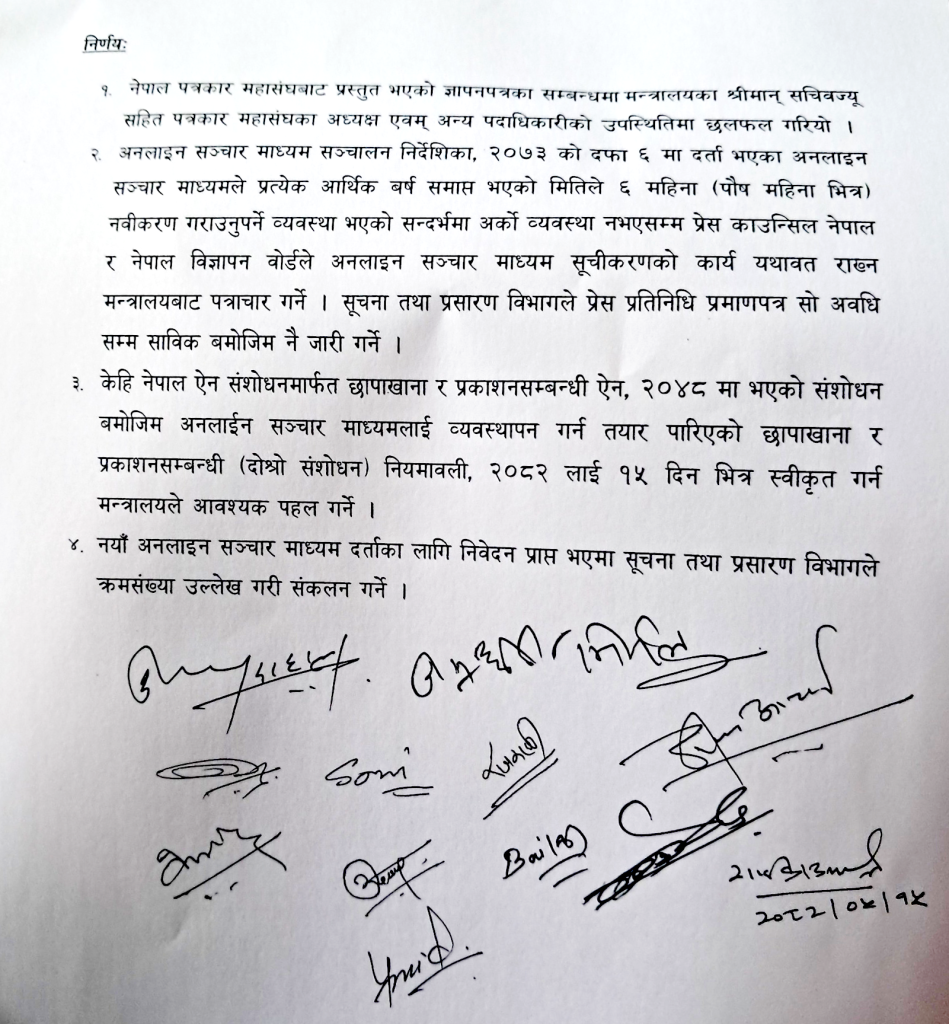 निर्णयः
१. नेपाल पत्रकार महासंघबाट प्रस्तुत भएको ज्ञापनपत्रका सम्बन्धमा मन्त्रालयका श्रीमान् सचिवज्यू
सहित पत्रकार महासंघका अध्यक्ष एवम् अन्य पदाधिकारीको उपस्थितिमा छलफल गरियो ।
२. अनलाइन सञ्चार माध्यम सञ्चालन निर्देशिका, २०७३ को दफा ६ मा दर्ता भएका अनलाइन
सञ्चार माध्यमले प्रत्येक आर्थिक बर्ष समाप्त भएको मितिले ६ महिना (पौष महिना भित्र)
नवीकरण गराउनुपर्ने व्यवस्था भएको सन्दर्भमा अर्को व्यवस्था नभएसम्म प्रेस काउन्सिल नेपाल
र नेपाल विज्ञापन वोर्डले अनलाइन सञ्चार माध्यम सूचीकरणको कार्य यथावत राख्न
मन्त्रालयबाट पत्राचार गर्ने । सूचना तथा प्रसारण विभागले प्रेस प्रतिनिधि प्रमाणपत्र सो अवधि
सम्म साविक बमोजिम नै जारी गर्ने ।
३. केहि नेपाल ऐन संशोधनमार्फत छापाखाना र प्रकाशनसम्बन्धी ऐन, २०४८ मा भएको संशोधन
बमोजिम अनलाईन सञ्चार माध्यमलाई व्यवस्थापन गर्न तयार पारिएको छापाखाना र
प्रकाशनसम्बन्धी (दोश्रो संशोधन) नियमावली, २०८२ लाई १५ दिन भित्र स्वीकृत गर्न
मन्त्रालयले आवश्यक पहल गर्ने ।
४. नयाँ अनलाइन सञ्चार माध्यम दर्ताका लागि निवेदन प्राप्त भएमा सूचना तथा प्रसारण विभागले
क्रमसंख्या उल्लेख गरी संकलन गर्ने ।
Somi
२०८२/०५/१५